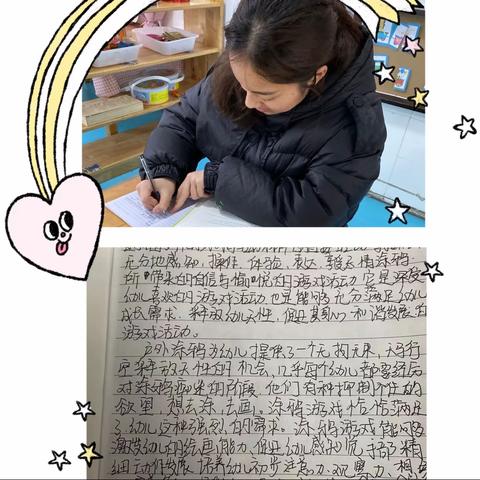 充分地感知、操作、体验、表达、释放情涂鸦
所带来的自信与愉悦的游戏活动它是深受
幼儿喜欢的游戏活动也是能够充分满足幼儿
成长需求、释放幼儿天性,促进其身心和谐发展的
游戏活动。
户外涂鸦为幼儿提供了一个无拘无束、
释放天性的机会,几乎每个幼儿都要经历
对涂鸦的阶段他们有种抑制不住的
欲望,想去涂,去画。涂鸦游戏恰恰满足
了幼儿这种强烈的需求。涂鸦游戏能够
激发幼儿的绘画能力、促进幼儿感知觉手部精
细动作发展、培养幼儿初步注意力、观察力、想象